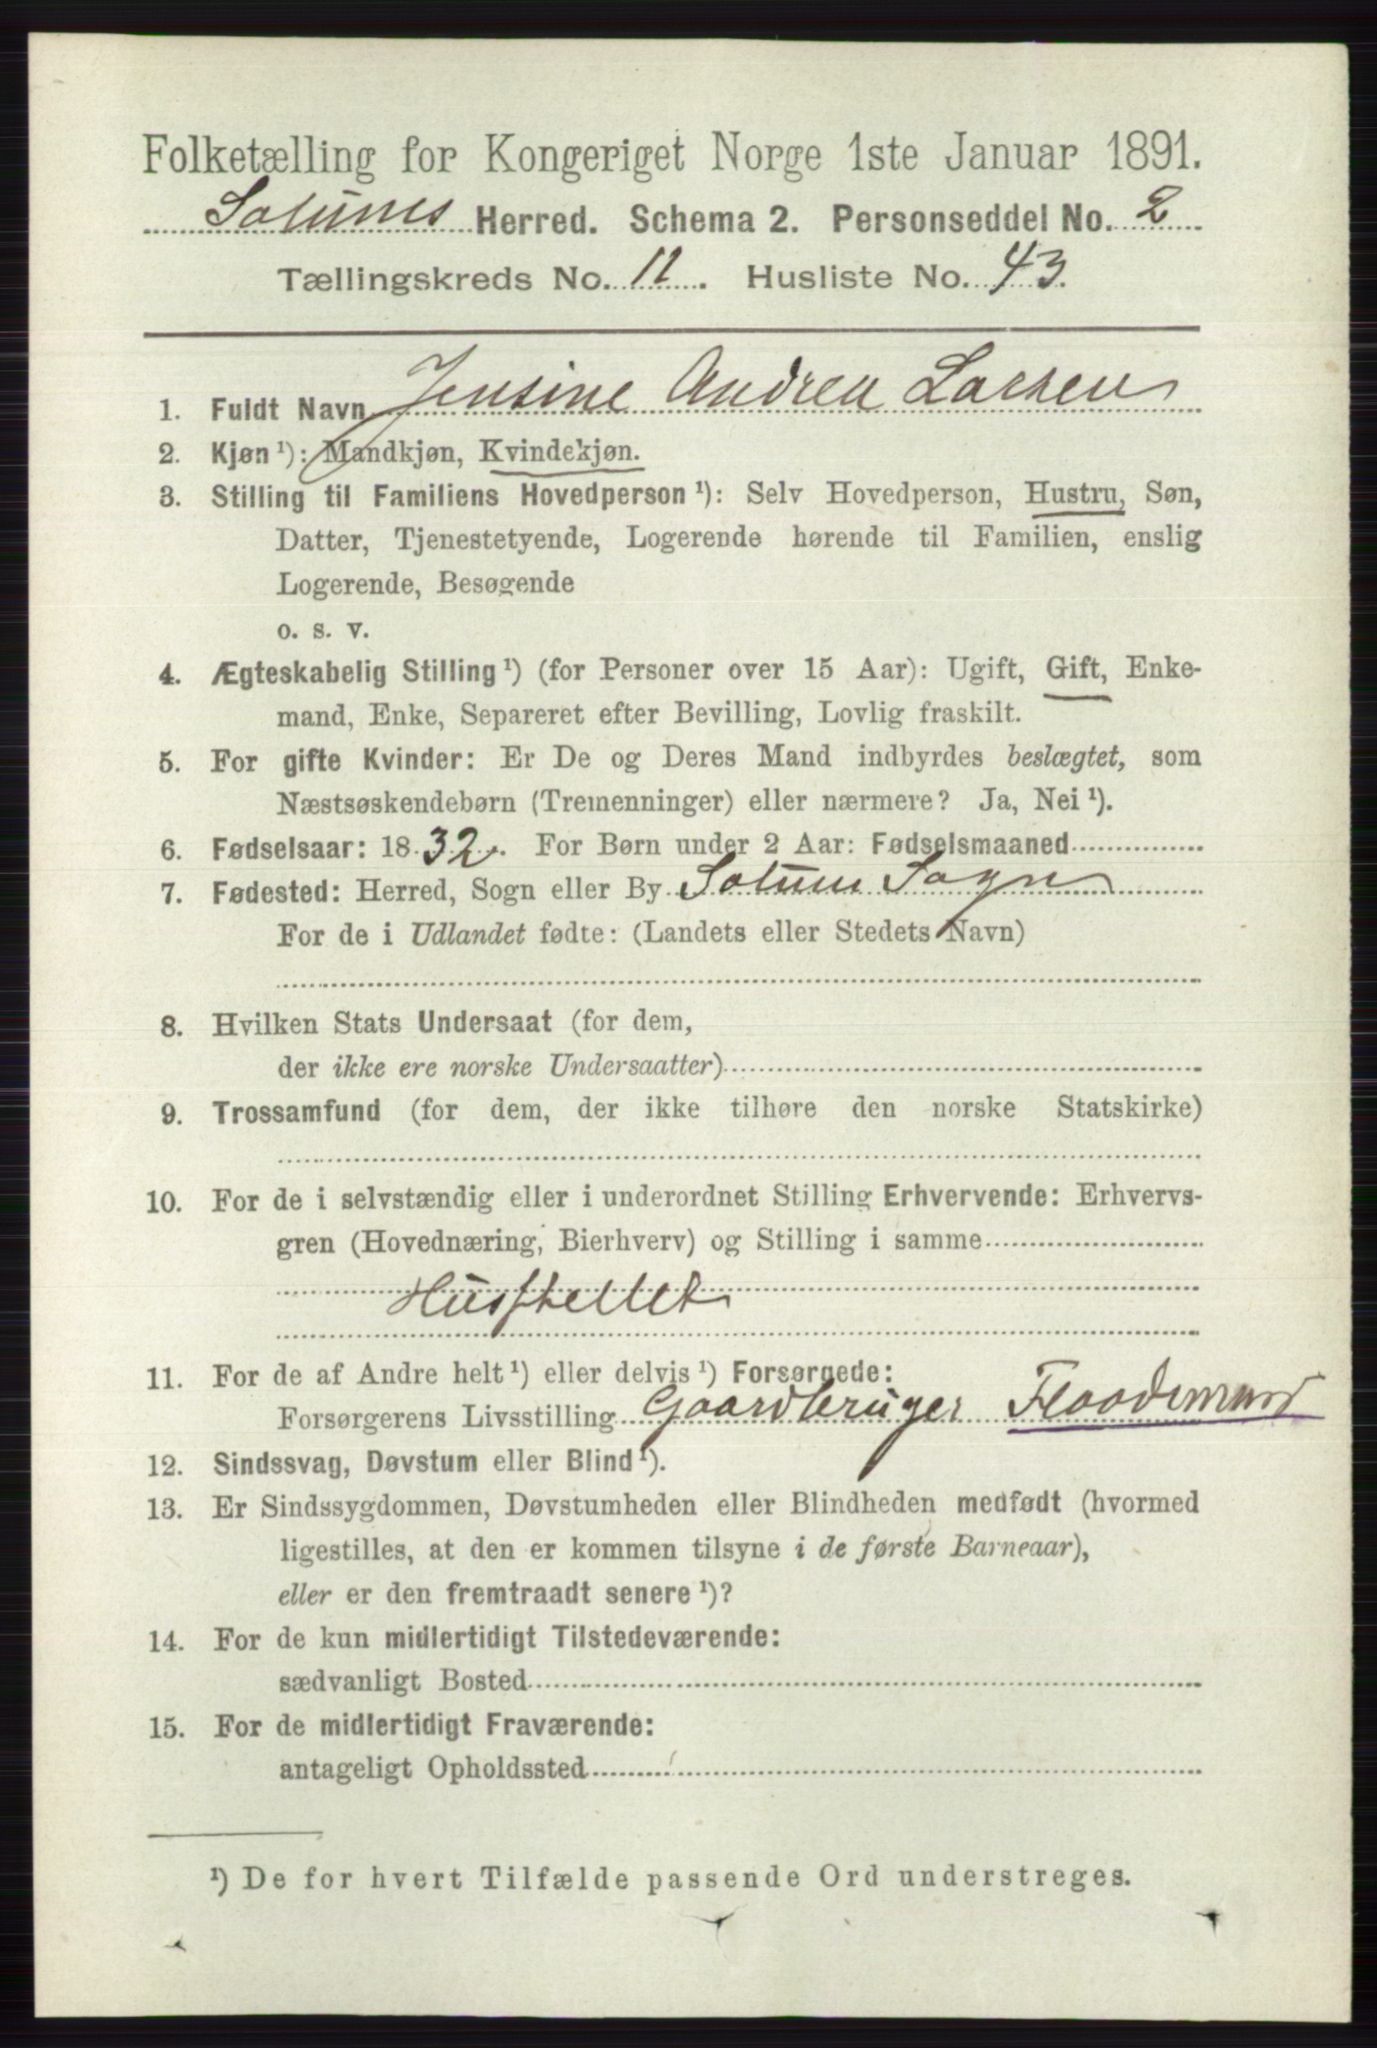 Folketælling for Kongeriget Norge 1ste Januar 1891.
Solums Herred. Schema 2. Personseddel No. 2
Tællingskreds No. 11. Husliste No. 43.
1. Fuldt Navn Jensine Andrea Larsen
2. Kjøn ¹): Mandkjøn, Kvindekjøn.
3. Stilling til Familiens Hovedperson ¹): Selv Hovedperson, Hustru, Søn,
Datter, Tjenestetyende, Logerende hørende til Familien, enslig
Logerende, Besøgende
o. s. v.
4. Ægteskabelig Stilling ¹) (for Personer over 15 Aar): Ugift, Gift, Enke-
mand, Enke, Separeret efter Bevilling, Lovlig fraskilt.
5. For gifte Kvinder: Er De og Deres Mand indbyrdes beslægtet, som
Næstsøskendebørn (Tremenninger) eller nærmere? Ja, Nei ¹).
6. Fødselsaar: 1832. For Børn under 2 Aar: Fødselsmaaned
7. Fødested: Herred, Sogn eller By Solum Sogn
For de i Udlandet fødte: (Landets eller Stedets Navn)
8. Hvilken Stats Undersaat (for dem,
der ikke ere norske Undersaatter)
9. Trossamfund (for dem, der ikke tilhøre den norske Statskirke)
10. For de i selvstændig eller i underordnet Stilling Erhvervende: Erhvervs-
gren (Hovednæring, Bierhverv) og Stilling i samme
Husstellet
11. For de af Andre helt ¹) eller delvis ¹) Forsørgede:
Forsørgerens Livsstilling Gaardbruger Flaademand
12. Sindssvag, Døvstum eller Blind ¹).
13. Er Sindssygdommen, Døvstumheden eller Blindheden medfødt (hvormed
ligestilles, at den er kommen tilsyne i de første Barneaar),
eller er den fremtraadt senere ¹)?
14. For de kun midlertidigt Tilstedeværende:
sædvanligt Bosted
15. For de midlertidigt Fraværende:
antageligt Opholdssted
¹) De for hvert Tilfælde passende Ord understreges.